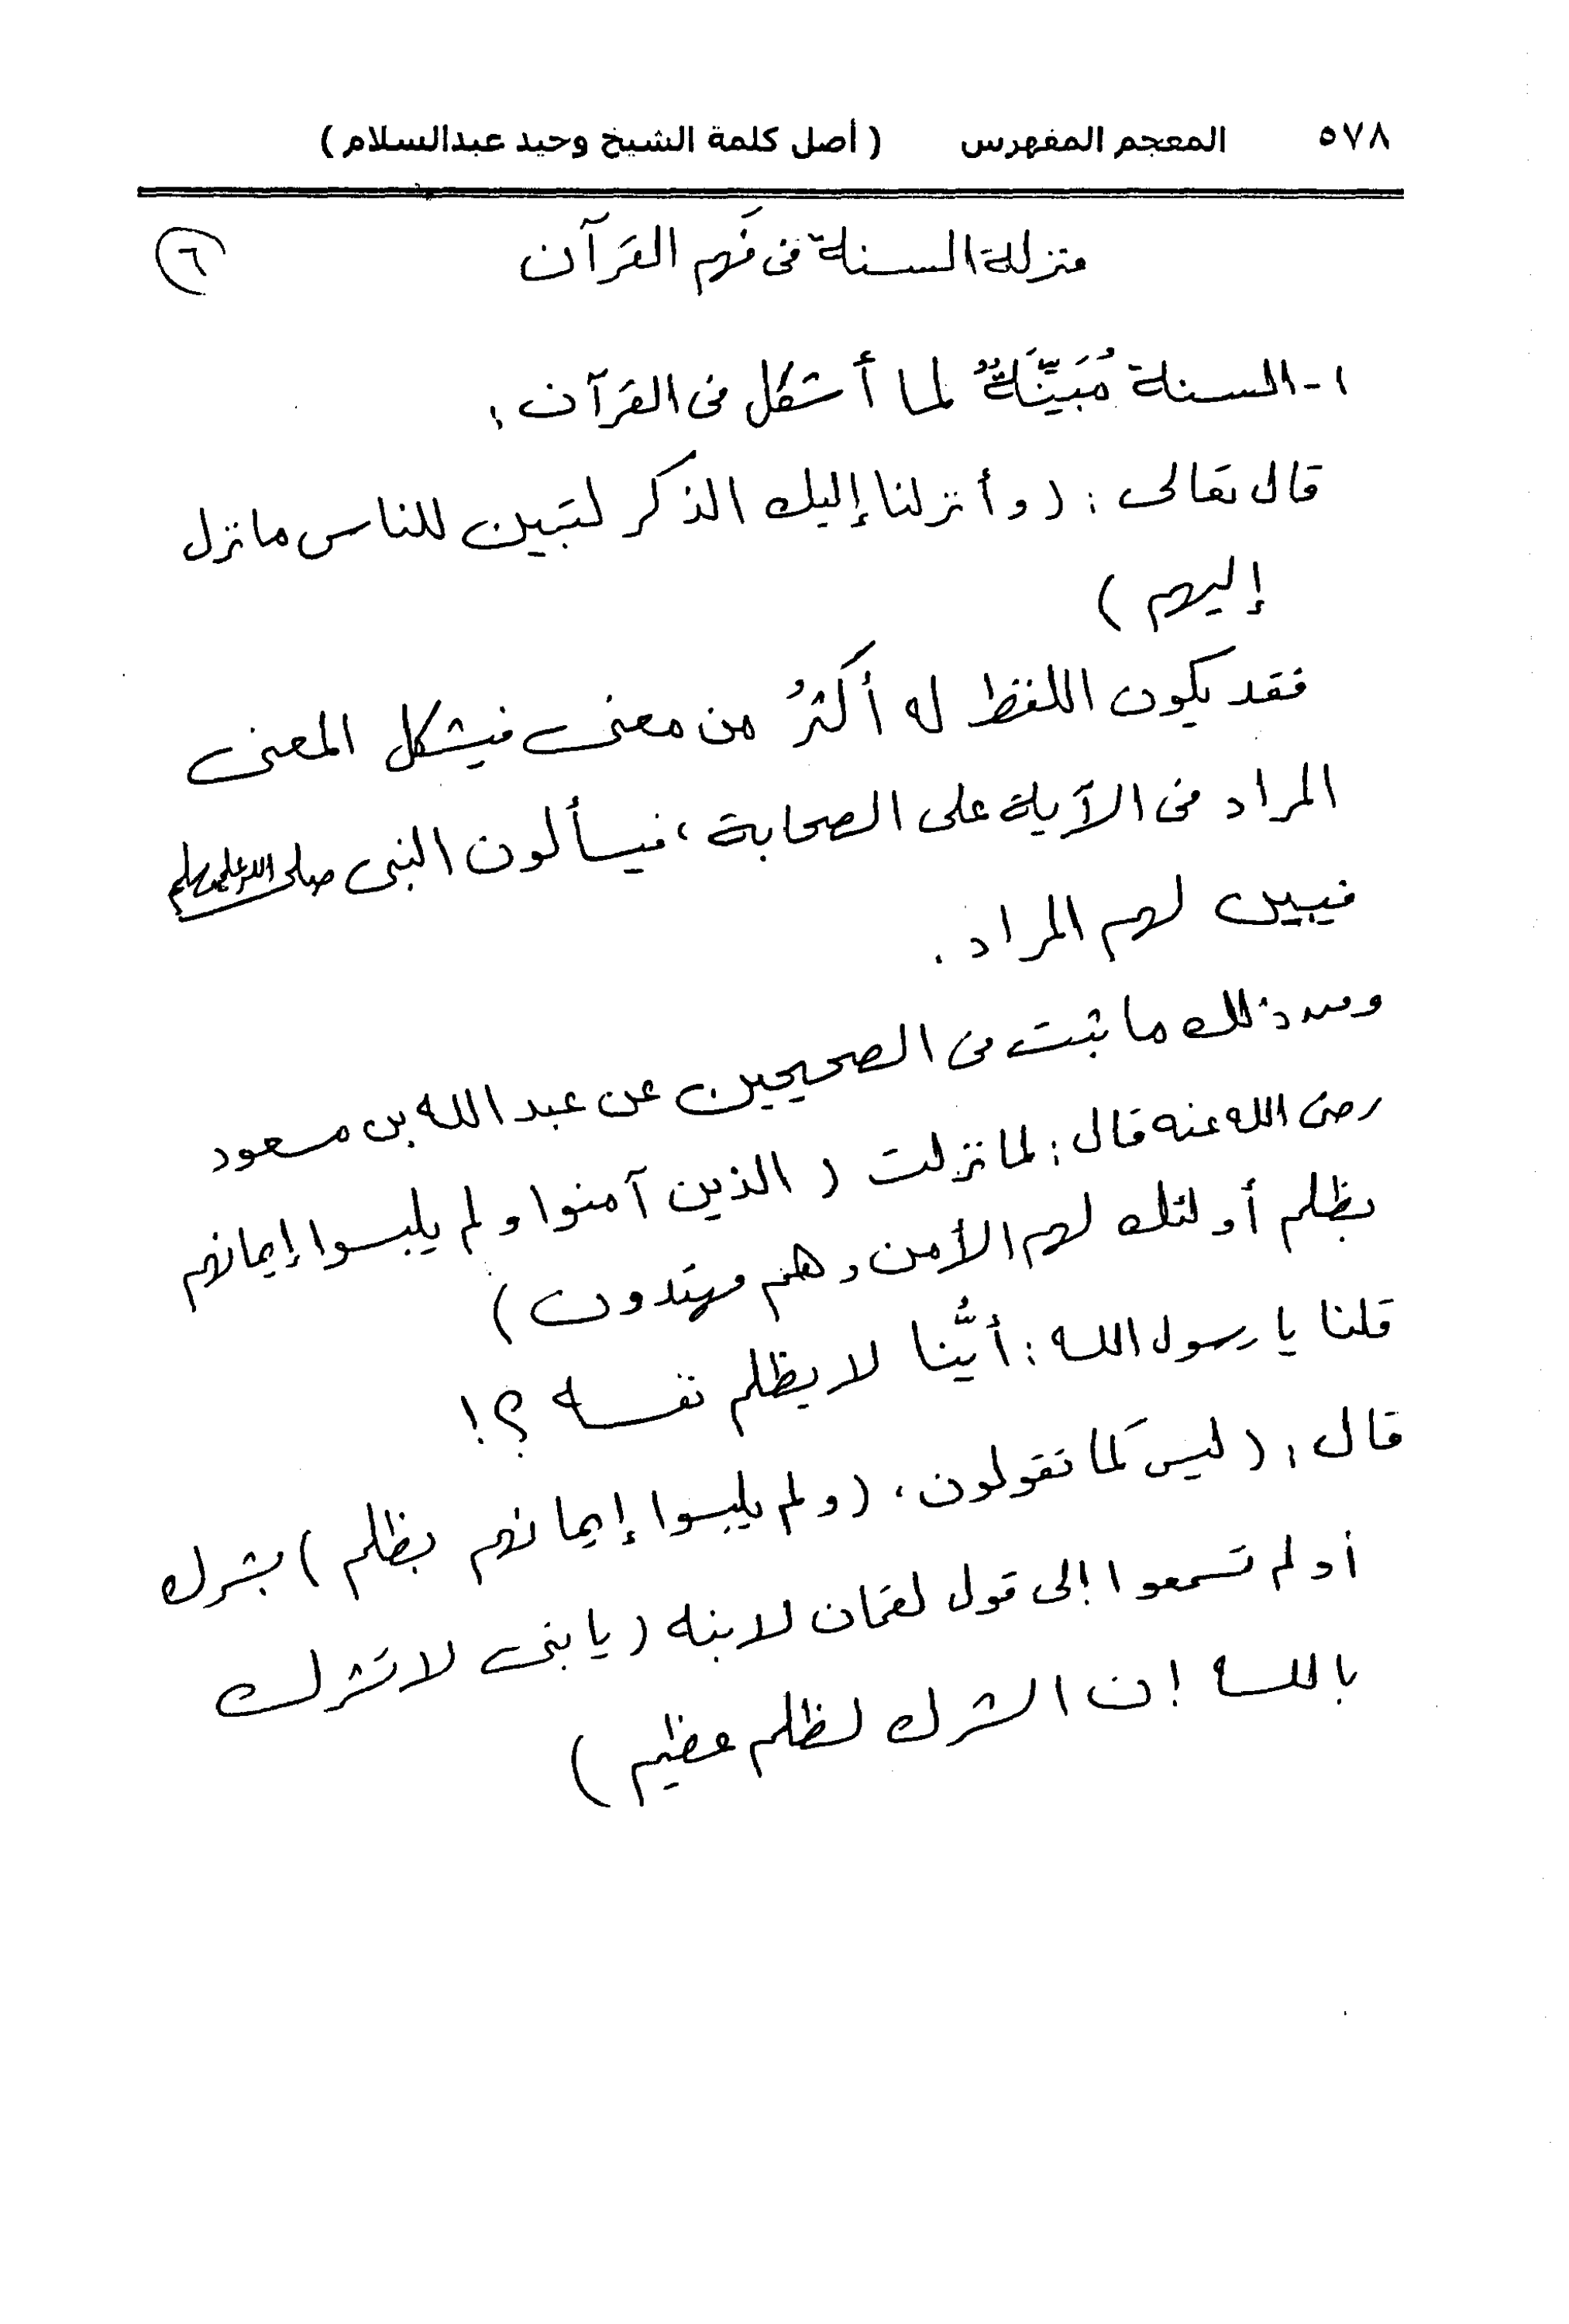 ٥٧٨ المعجم المفهرس ( أصل كلمة الشيخ وحيد عبدالسلام )
منزلة السنة فى فَهم القرآن ٦
١- السنة مُبَيِّنَةٌ لما أشكل فى القرآن :
قال تعالى : ( وأنزلنا إليك الذكر لتبين للناس ما نزل
إليهم )
فقد يكون اللفظ له أكثرُ من معنى فيشكل المعنى
المراد فى الآية على الصحابة ، فيسألون النبى صلى الله عليه وسلم
فيبين لهم المراد .
ومن ذلك ما ثبت فى الصحيحين عن عبد الله بن مسعود
رضى الله عنه قال : لما نزلت ( الذين آمنوا ولم يلبسوا إيمانهم
بظلم أولئك لهم الأمن وهم مهتدون )
قلنا يا رسول الله : أيُّنا لا يظلم نفسه ؟!
قال : ( ليس كما تقولون ، ( ولم يلبسوا إيمانهم بظلم ) بشرك
أو لم تسمعوا إلى قول لقمان لابنه ( يا بنى لا تشرك
بالله إن الشرك لظلم عظيم )